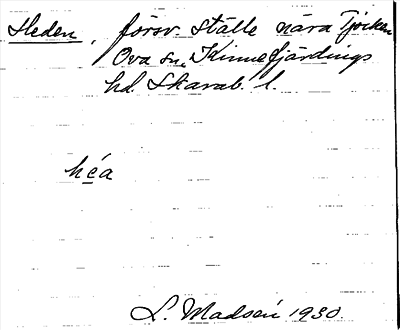 Heden, försv. ställe nära Tjocken
Ova sn, Kinnefjärdings
hd. Skarab. l.
héa
L. Madsén 1930.